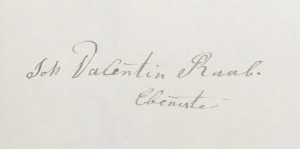 Joh Valentin Raab.
Ebéniste